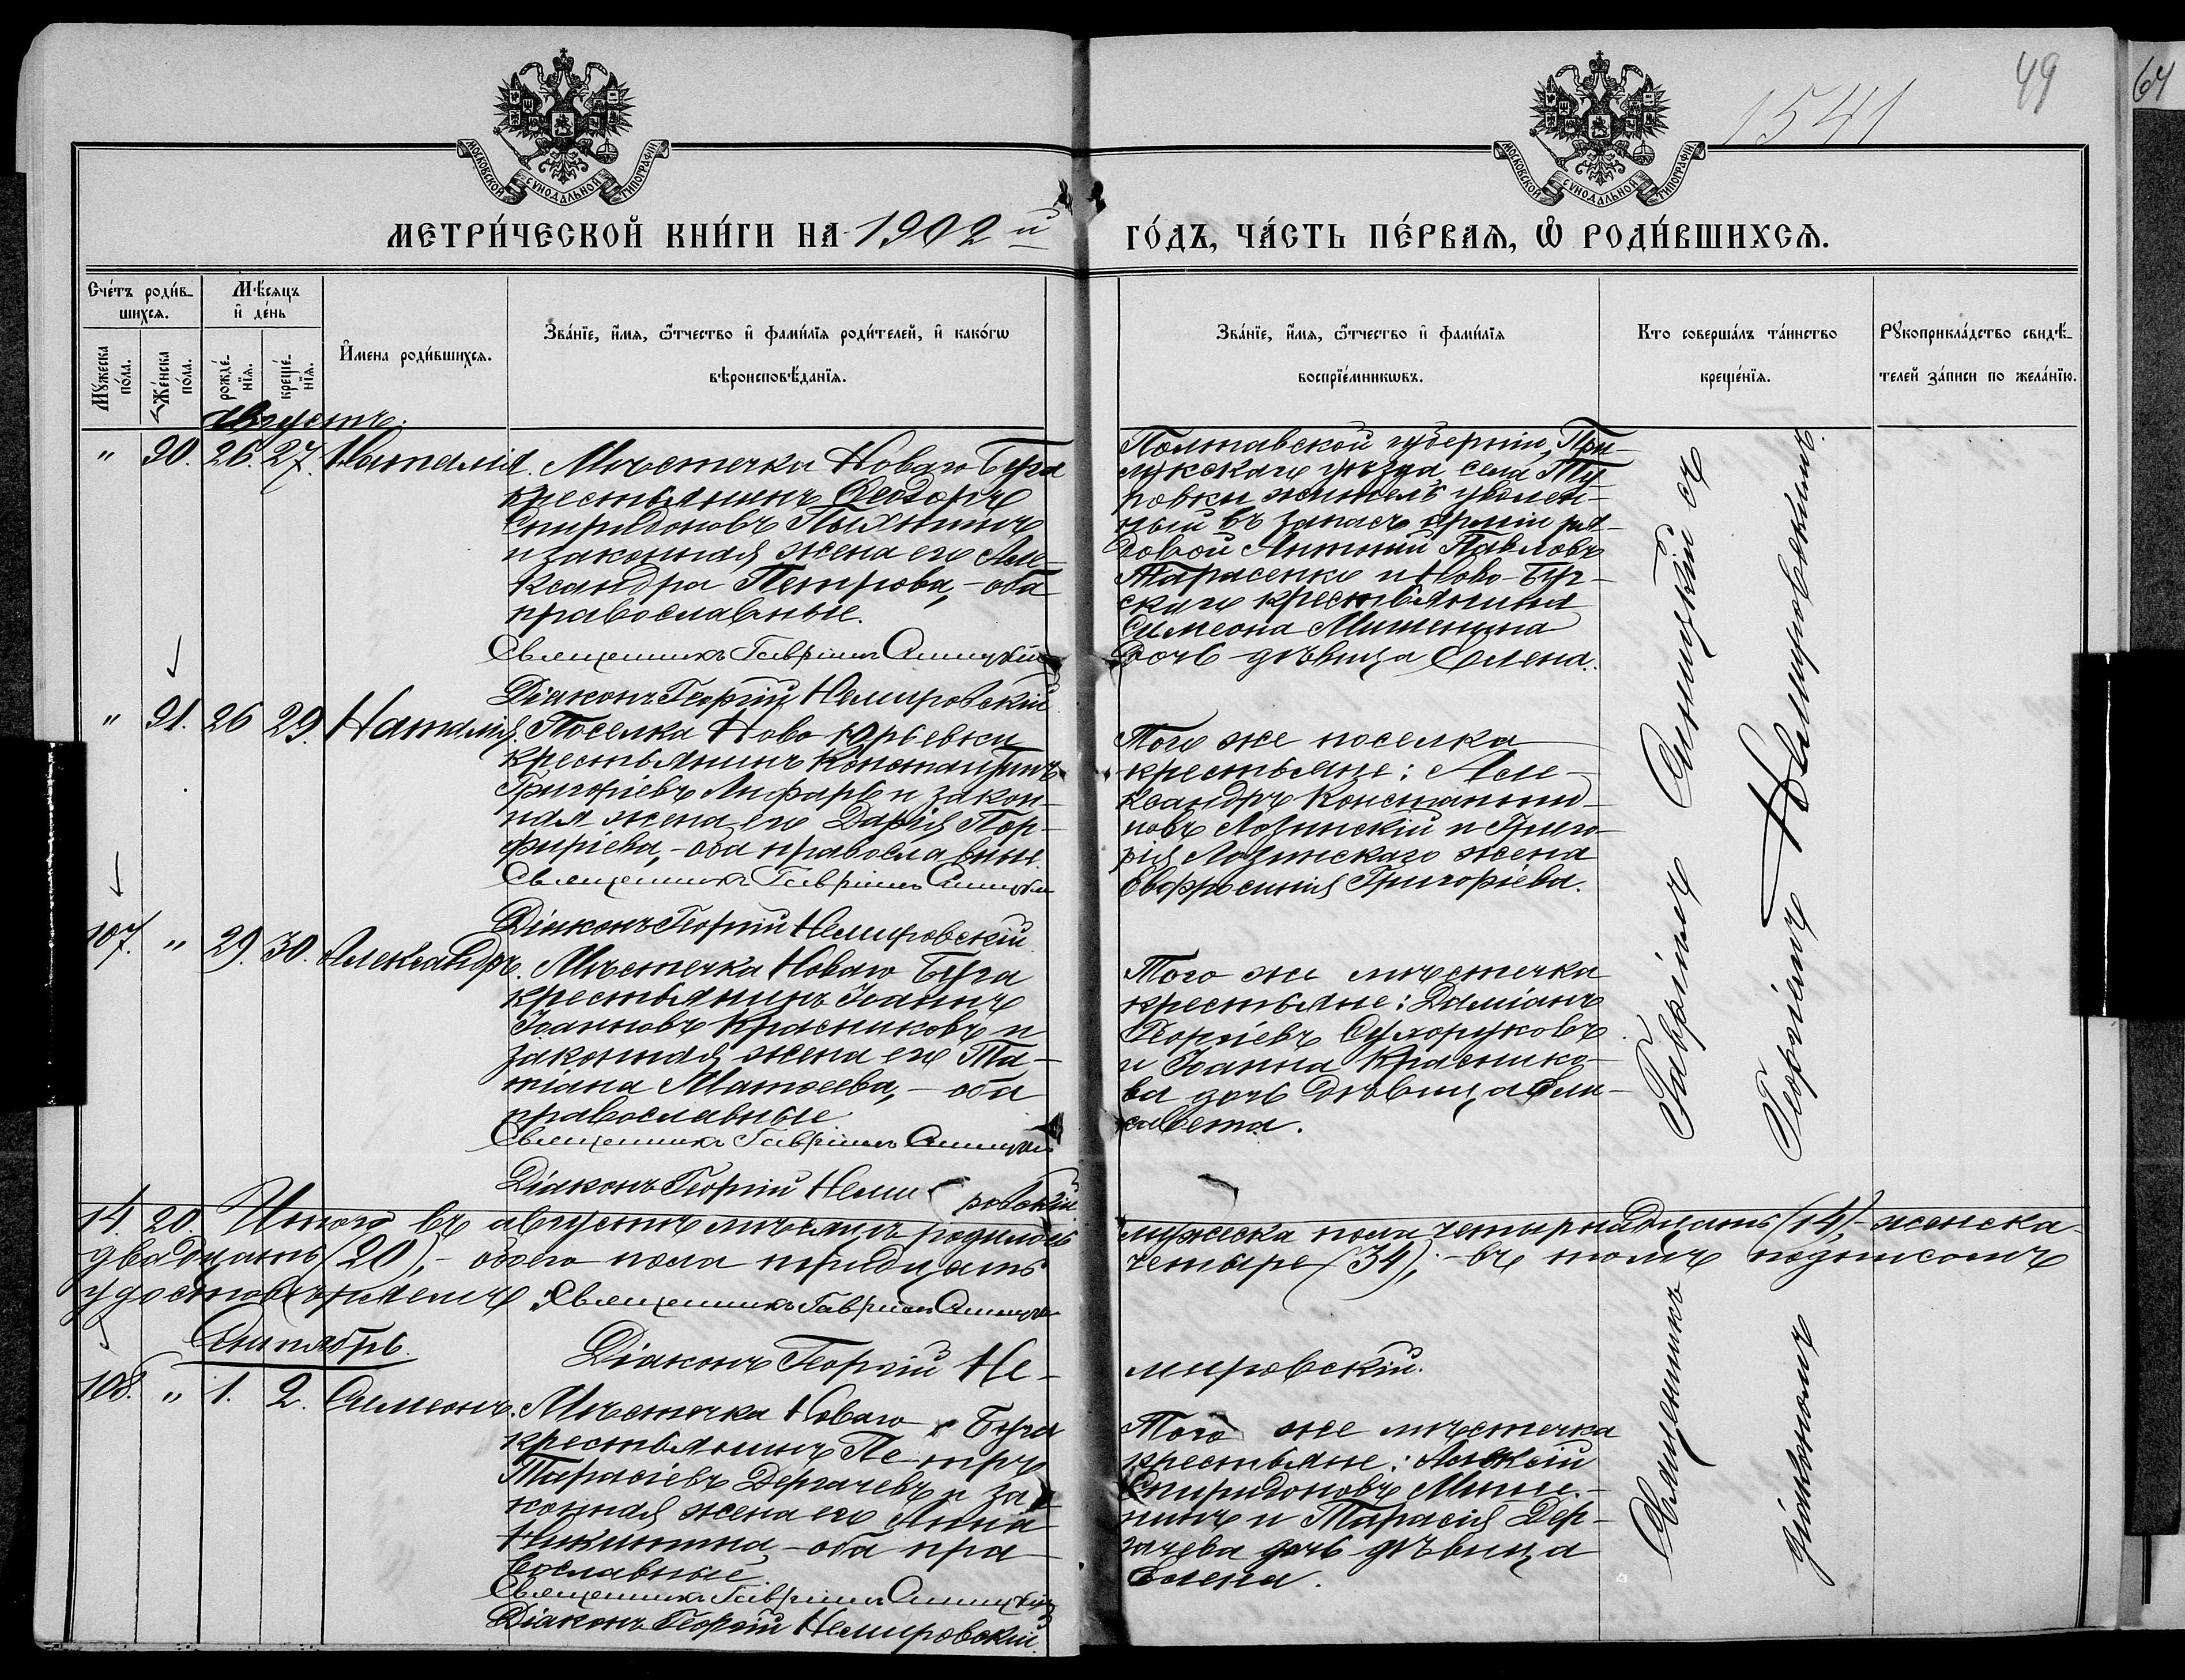 1541
49
64
МОСКОВСКОЙ СѴНОДАЛЬНОЙ ТИПОГРАФІИ
МОСКОВСКОЙ СѴНОДАЛЬНОЙ ТИПОГРАФІИ
МЕТРИ́ЧЕСКОЙ КНИ́ГИ НА 1902й
ГО́ДЪ, ЧА́СТЬ ПЕ́РВАѦ, Ѡ РОДИ́ВШИХСѦ.
Сче́тъ роди́в-
шихсѧ.
Мꙋ́жеска
по́ла.
Же́нска
по́ла.
Мѣ́сѧцъ
и҆ де́нь
рожде́-
нїѧ.
креще́-
нїѧ.
И҆мена роди́вшихсѧ.
Зва́нїе, и҆́мѧ, ѻ҆́тчество и҆ фами́лїѧ роди́телей, и҆ како́гѡ
вѣроисповѣ́данїѧ.
Зва́нїе, и҆́мѧ, ѻ҆́тчество и҆ фами́лїѧ
воспрїе́мникѡвъ.
Кто соверша́лъ та́инство
креще́нїѧ.
Рꙋкоприкла́дство свидѣ́-
телей за́писи по жела́нїю.
Августъ.
" 90. 26. 27. Наталія. Мѣстечка Новаго Буга
крестьянинъ Ѳеодоръ
Спиридоновъ
и законная жена его Але-
ксандра Петрова, - оба
православные.
Священникъ Гавріилъ
Діаконъ Георгій Немировскій
Полтавской губерніи, При-
лукскаго уѣзда, села Ту
ровки житель уволен-
ный въ запасъ арміи ря-
довой Антоній Павловъ
Тарасенко и Ново-Буг-
скаго крестьянина
Симеона
дочь дѣвица Елена.
" 91. 26 29. Наталія. Поселка Ново Юрьевки
крестьянинъ Константинъ
Григоріевъ Лифарь и закон-
ная жена его Дарія Пор-
фиріева, - оба православные.
Священникъ Гавріилъ
Діаконъ Георгій Немировскій
Того же поселка
крестьяне: Але-
ксандръ Константи-
новъ Лозинскій и Григо-
рія Лозинскаго жена
Евфросинія Григоріева.
107. " 29. 30. Александръ. Мѣстечка Новаго Буга
крестьянинъ Іоаннъ
Іоанновъ Красниковъ и
законная жена его Та-
тіана Матѳеева, - оба
православные
Священникъ Гавріилъ
Діаконъ Георгій Неми-
ровскій
Того же мѣстечка
крестьяне: Даміанъ
Георгіевъ Сухоруковъ
и Іоанна Краснико-
ва дочь дѣвица Ели-
савета.
14. 20. Итого въ августѣ мѣсяцѣ родилось мужеска пола четырнадцать (14), - женска -
двадцать (20), - обоего пола тридцать четыре (34); - въ томъ подписомъ
удостовѣряемъ: Священникъ Гавріилъ
Діаконъ Георгій Не-
мировскій.
Сентябрь.
108. " 1. 2. Симеонъ. Мѣстечка Новаго Буга
крестьянинъ Петръ
Тарасіевъ Дергачевъ и за
конная жена его Анна
Никитина, - оба пра
вославные.
Священникъ Гавріилъ
Діаконъ Георгій Немировскій
Того же мѣстечка
крестьяне: Алексій
Спиридоновъ
и Тарасія Дер-
гачева дочь дѣвица
Елена.
Священникъ Гавріилъ съ
діакономъ Георгіемъ Немировскимъ.